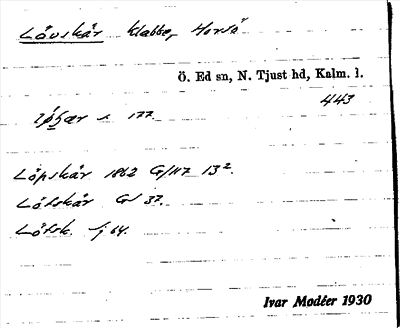 Lövskär klabbe, Horsö
Ö. Ed sn, N. Tjust hd, Kalm. l.
443
s 177.
Löpskär 1862 G/117 13².
Löfskär G 37.
Löfsk. Sj 64.
Ivar Modéer 1930